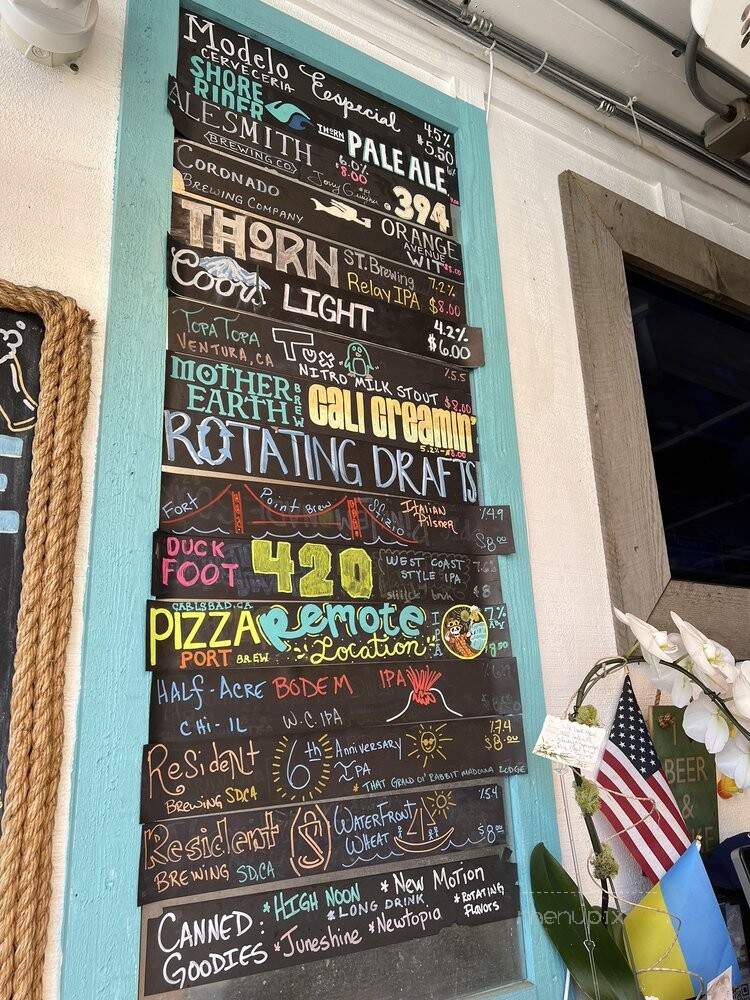 Modelo Eespecial 4.5%
CERVECERIA $5.50
SHORE RIDER THORN PALE ALE
ALESMITH 6.0%
BREWING CO $8.00 .394
CORONADO ORANGE
BREWING COMPANY AVENUE
WIT $8.00
THORN ST. Brewing 7.2%
Relay IPA $8.00
Coors LIGHT 4.2%
$6.00
TOPA TOPA Tux %5.5
VENTURA, CA NITRO MILK STOUT $8.00
MOTHER EARTH BREW CALI CREAMIN'
5.2% $8.00
ROTATING DRAFTS
FORT Point Brew Sfizio ITALIAN %4.9
Pilsner $8.00
DUCK FOOT 420 WEST COAST
STYLE IPA $8
CARLSBAD, CA
PIZZA Remote IPA 7% ABV
PORT BREW Location
HALF-ACRE BODEM IPA
CHI-IL W.C. IPA
Resident 6th Anniversary %7.4
BREWING SD,CA IPA $8.00
* THAT GRAND OL' RABBIT MADONA LODGE
Resident WATERFRONT %5.4
BREWING SD,CA WHEAT $8.00
CANNED: *HIGH NOON *New Motion
GOODIES *LONG DRINK *ROTATING
*Juneshine *Newtopia FLAVORS
BEER
&
menupix